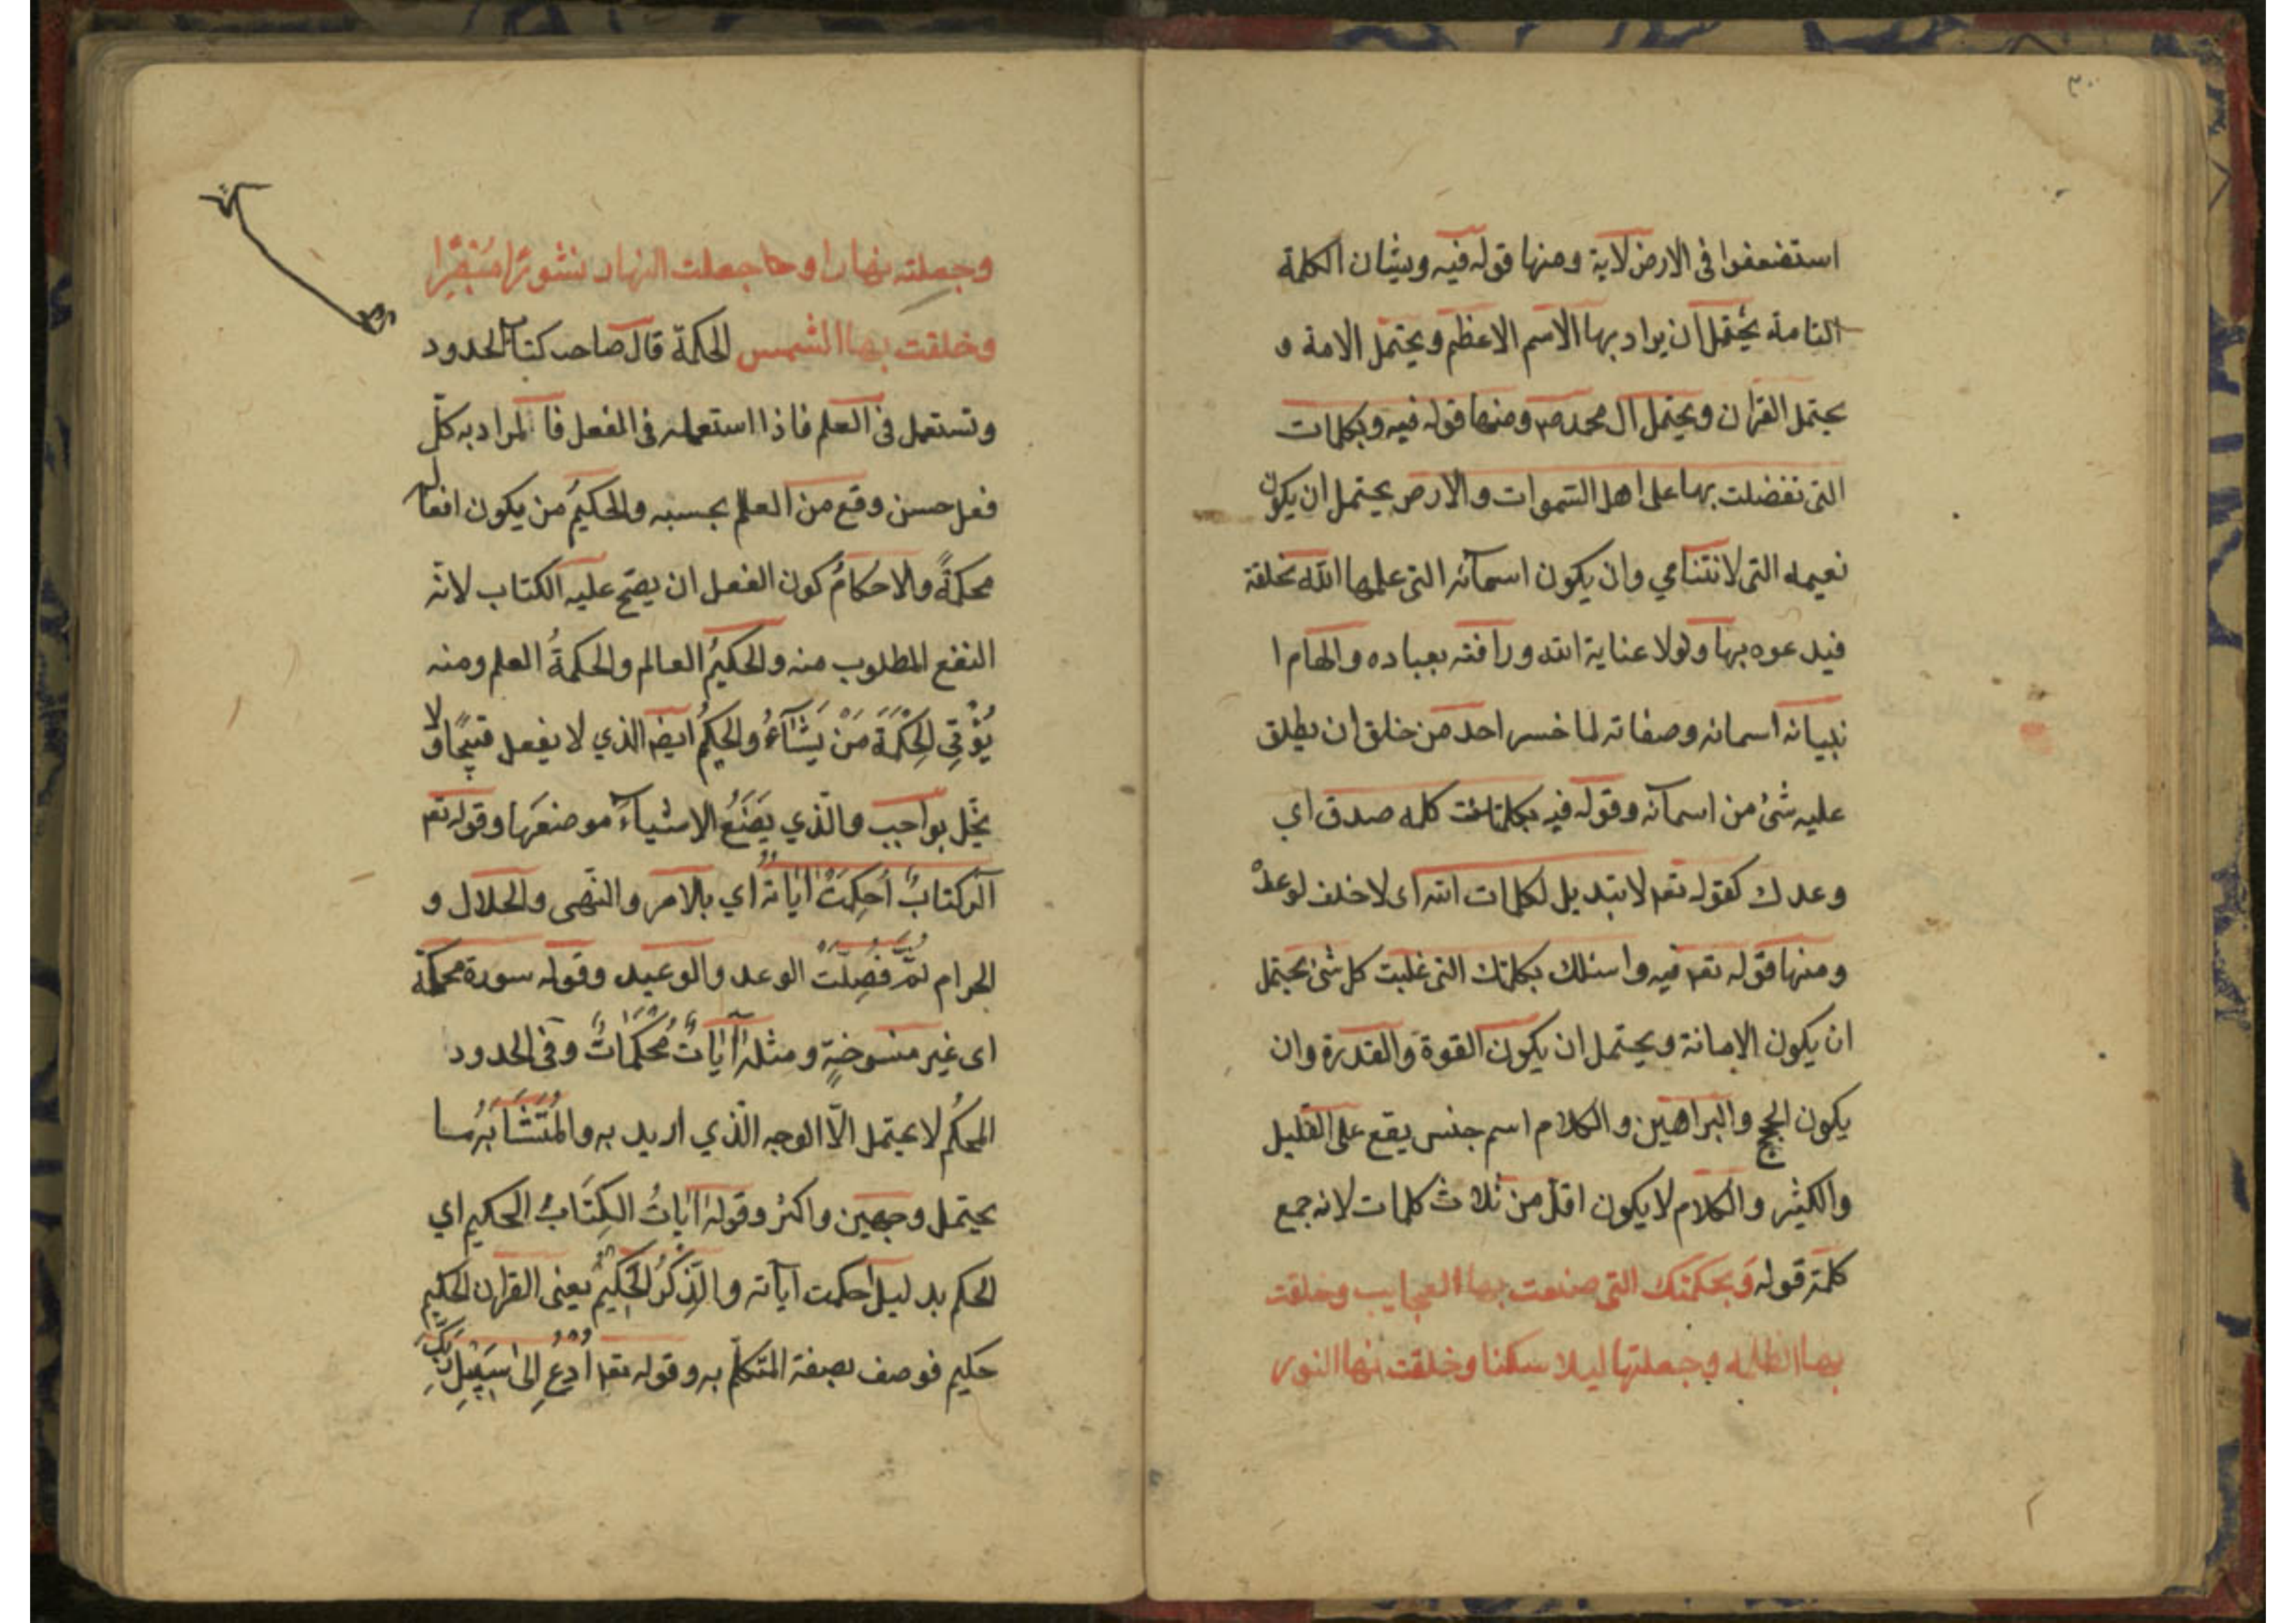 ٣٠
استضعفوا فى الارض لاية ومنها قوله فيه وبشان الكلمة
التامة يحتمل ان يراد بها الاسم الاعظم ويحتمل الامة و
يحتمل القران ويحتمل ال محمد ص ومنها قوله فيه وبكلمات
التى تفضلت بها على اهل السموات والارض يحتمل ان يكون
نعيمه التى لا تتناهي وان يكون اسمآئه التى علمها الله بخلقه
فيدعوه بها ولولا عناية الله ورافته بعباده والهام ا
نبيائه اسمائه وصفاته لما خسر احد من خلق ان يطلق
عليه شئ من اسمآئه وقوله فيه بكلمتك كلمه صدق اي
وعدك كقوله تعم لا تبديل لكلمات الله اى لا خلف لوعده
ومنها قوله تعم فيه واسئلك بكلمتك التى غلبت كل شئ يحتمل
ان يكون الامانة ويحتمل ان يكون القوة والقدرة وان
يكون الحجج والبراهين والكلام اسم جنس يقع على القليل
والكثير والكلام لا يكون اقل من ثلاث كلمات لانه جمع
كلمة قوله وبحكمتك التى صنعت بها العجايب وخلقت
بها الظلمه وجعلتها ليلا سكنا وخلقت بها النور
وجعلته نهارا وجعلت النهار نشورا مبصرا
وخلقت بها الشمس الحكمة قال صاحب كتاب الحدود
وتستعمل فى العلم فاذا استعمله فى الفعل فالمراد به كلّ
فعل حسن وقع من العلم بحسبه والحكيم من يكون افعاله
محكمةً والاحكامُ كون الفعل ان يصحّ عليه الكتاب لانّه
النفع المطلوب منه والحكيمُ العالم والحكمةُ العلم ومنه
يُؤْتِي الحِكْمَةَ مَنْ يَشَآءُ والحكيمُ ايضا الذي لا يفعل قبيحًا ولا
يخلّ بواجب والّذي يَضَعُ الاشياءَ موضعَها وقوله تعم
آلر كتابٌ اُحكِمَتْ اٰيٰاتُهُ اي بالامر والنّهى والحلال و
الحرام ثُمَّ فُصِلَتْ الوعد والوعيد وقوله سورة محكمة
اى غير منسوخةٍ ومثله اٰيٰاتٌ مُحْكَمٰاتٌ وفى الحدود
المحكمُ لا يحتمل الّا الوجه الّذي اريد به والمُتَشَابَهُ ما
يحتمل وجهين واكثر وقوله اٰيٰاتُ الكِتَابُ الحكيم اي
المحكم بدليل احكمت آياته والذّكرُ الحكيمُ يعنى القران الحكيم
حكيم فوصف بصفة المتكلّم به وقوله تعم اُدعُ الىٰ سَبيلِ رَبِّكَ